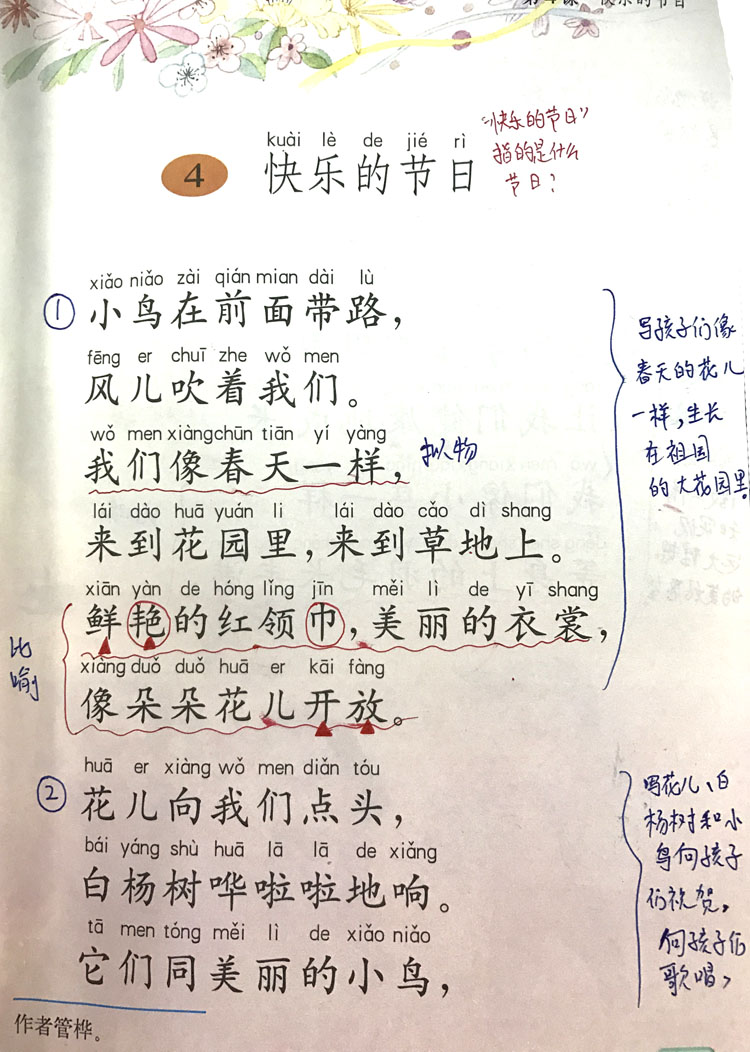 第4课 快乐的节日
kuài lè de jié rì
4 快乐的节日
“快乐的节日”
指的是什么
节日？
xiǎo niǎo zài qián mian dài lù
① 小鸟在前面带路，
fēng er chuī zhe wǒ men
风儿吹着我们。
wǒ men xiàng chūn tiān yí yàng
我们像春天一样，
拟物
lái dào huā yuán li lái dào cǎo dì shang
来到花园里，来到草地上。
xiān yàn de hóng lǐng jīn měi lì de yī shang
鲜艳的红领巾，美丽的衣裳，
xiàng duǒ duǒ huā er kāi fàng
像朵朵花儿开放。
比
喻
写孩子们像
春天的花儿
一样，生长
在祖国
的大花园里。
huā er xiàng wǒ men diǎn tóu
② 花儿向我们点头，
bái yáng shù huā lā lā de xiǎng
白杨树哗啦啦地响。
tā men tóng měi lì de xiǎo niǎo
它们同美丽的小鸟，
写花儿、白
杨树和小
鸟向孩子
们祝贺，
向孩子们
歌唱，
作者管桦。